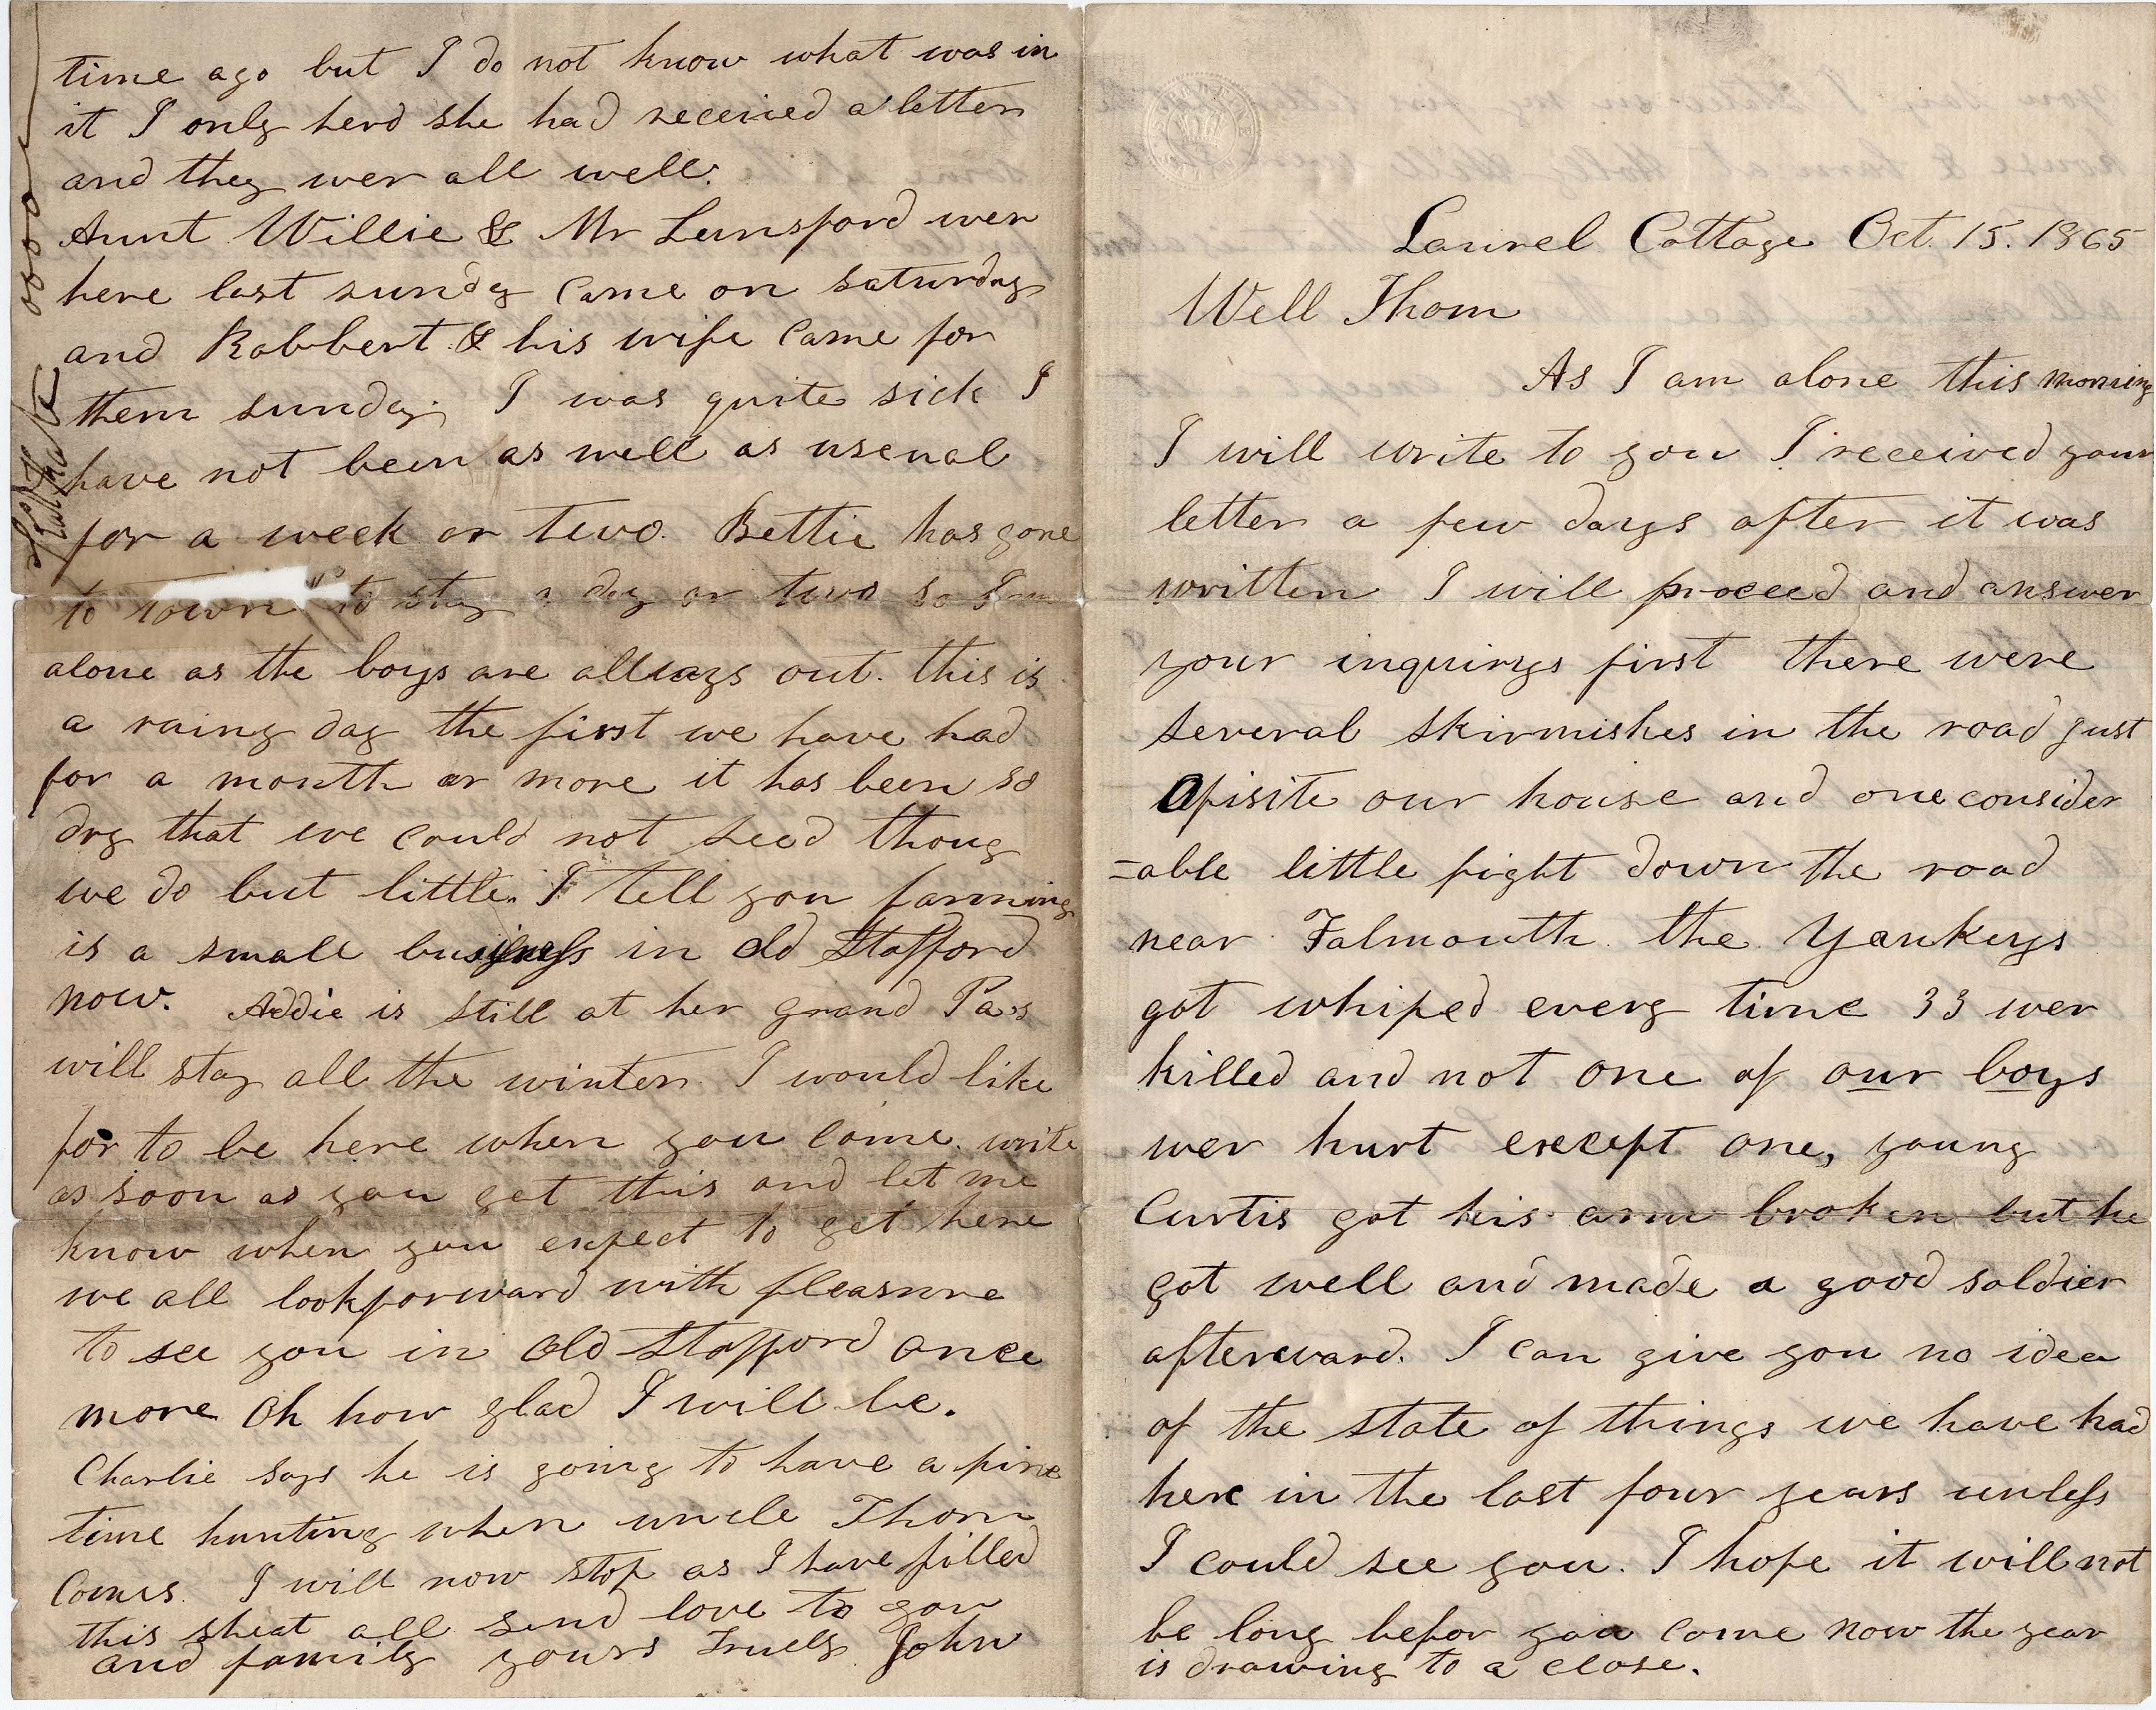 Laurel Cottage Oct. 15. 1865
Well Thom
As I am alone this morning
I will write to you I received your
letter a few days after it was
written I will proceed and answer
your inquirys first there were
several skirmishes in the road just
Opisite our house and one consider
=able little fight down the road
near Falmouth. the Yankeys
got whiped every time 33 wer
killed and not one of our boys
wer hurt except one, young
Curtis got his arm broken but he
got well and made a good soldier
afterward. I can give you no idea
of the state of things we have had
here in the last four years unless
I could see you. I hope it will not
be long befor you come now the year
is drawing to a close.
time ago but I do not know what was in
it I only herd she had received a letter
and they wer all well.
Aunt Willie & Mr Lunsford wer
here last sunday came on saturday
and Robbert & his wife came for
them sunday. I was quite sick I
have not been as well as usenal
for a week or two. Bettie has gone
to town to stay a day or two so I am
alone as the boys are allways out. this is
a rainy day the first we have had
for a month or more it has been so
dry that we could not seed thoug
we do but little. I tell you farming
is a small business in old Stafford
now. Addie is still at her grand Pa's
will stay all the winter. I would like
for to be here when you come. write
as soon as you get this and let me
know when you expect to get here
we all look forward with pleasure
to see you in old Stafford once
more Oh how glad I will be.
Charlie says he is going to have a fine
time hunting when uncle Thom
Comes. I will now stop as I have filled
this sheat all send love to you
and family yours Truely John